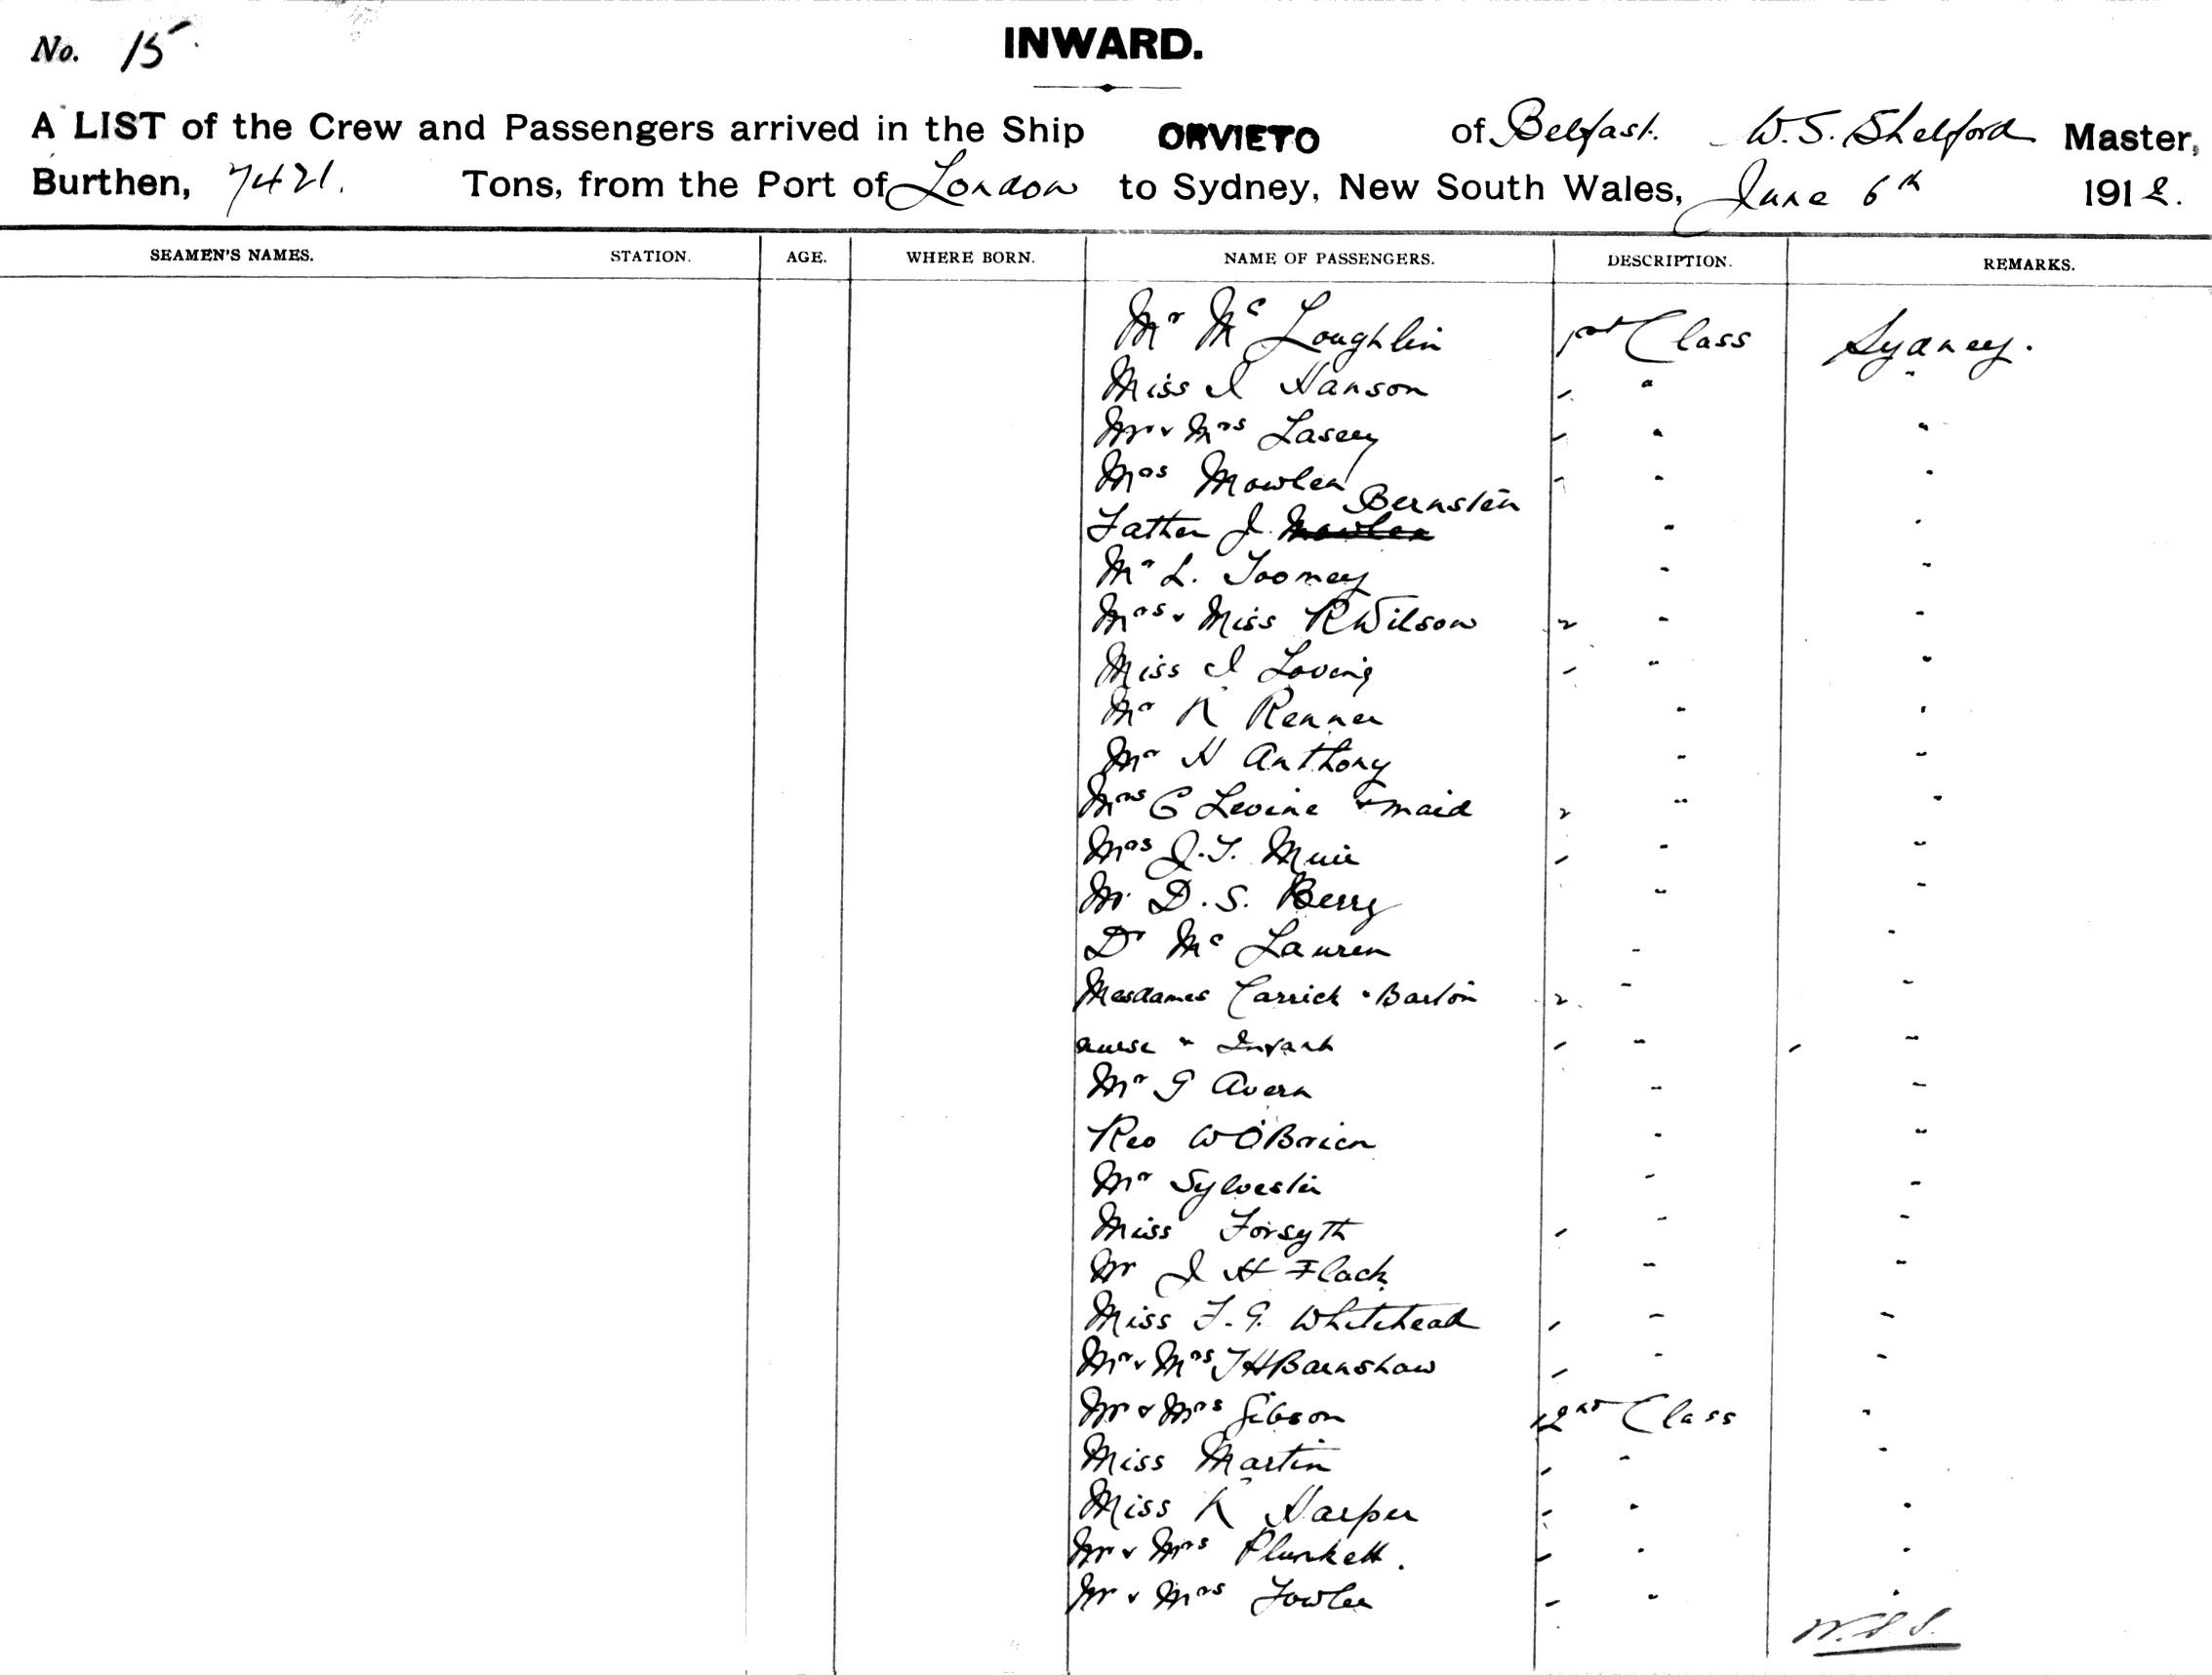 No. 15.
INWARD.
A LIST of the Crew and Passengers arrived in the Ship ORVIETO of Belfast. W. S. Shelford Master,
Burthen, 7421. Tons, from the Port of London to Sydney, New South Wales, June 6th 1912.
SEAMEN'S NAMES. STATION. AGE. WHERE BORN. NAME OF PASSENGERS. DESCRIPTION. REMARKS.
Mr Mc Loughlin 1st Class Sydney.
Miss I Hanson " "
Mr & Mrs Lasey " "
Mrs Mowlen " "
Bernstein
Father J. Mowlen " "
Mr L. Toomey " "
Mrs & Miss R Wilson 2 " "
Miss I Loving " "
Mr K Renner " "
Mr H Anthony " "
Mrs C Levine & maid 2 " "
Mrs J. T. Muir " "
Mr D. S. Berry " "
Dr Mc Lauren " "
Mesdames Carrick & Barton 2 " "
nurse & Infant " "
Mr G Avern " "
Rev W O'Brien " "
Mr Sylvester " "
Miss Forsyth " "
Mr J H Flack " "
Miss F. G. Whitehead " "
Mr & Mrs J H Barnshaw " "
Mr & Mrs Gibson 2nd Class "
Miss Martin " "
Miss K Harper " "
Mr & Mrs Plunkett. " "
Mr & Mrs Fowler " "
W.S.S.